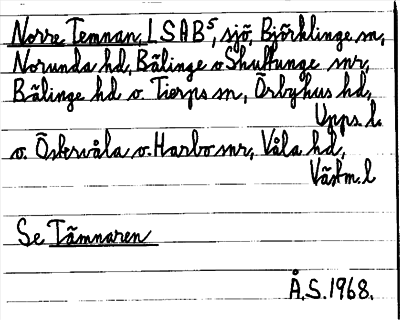 Norre Temnan, LSAB⁵, sjö, Björklinge sn,
Norunda hd, Bälinge o Skuttunge snr,
Bälinge hd o. Tierps sn, Örbyhus hd,
Upps. l.
o. Östervåla o. Harbo snr, Våla hd,
Västm. l
Se Tämnaren
Å.S. 1968.